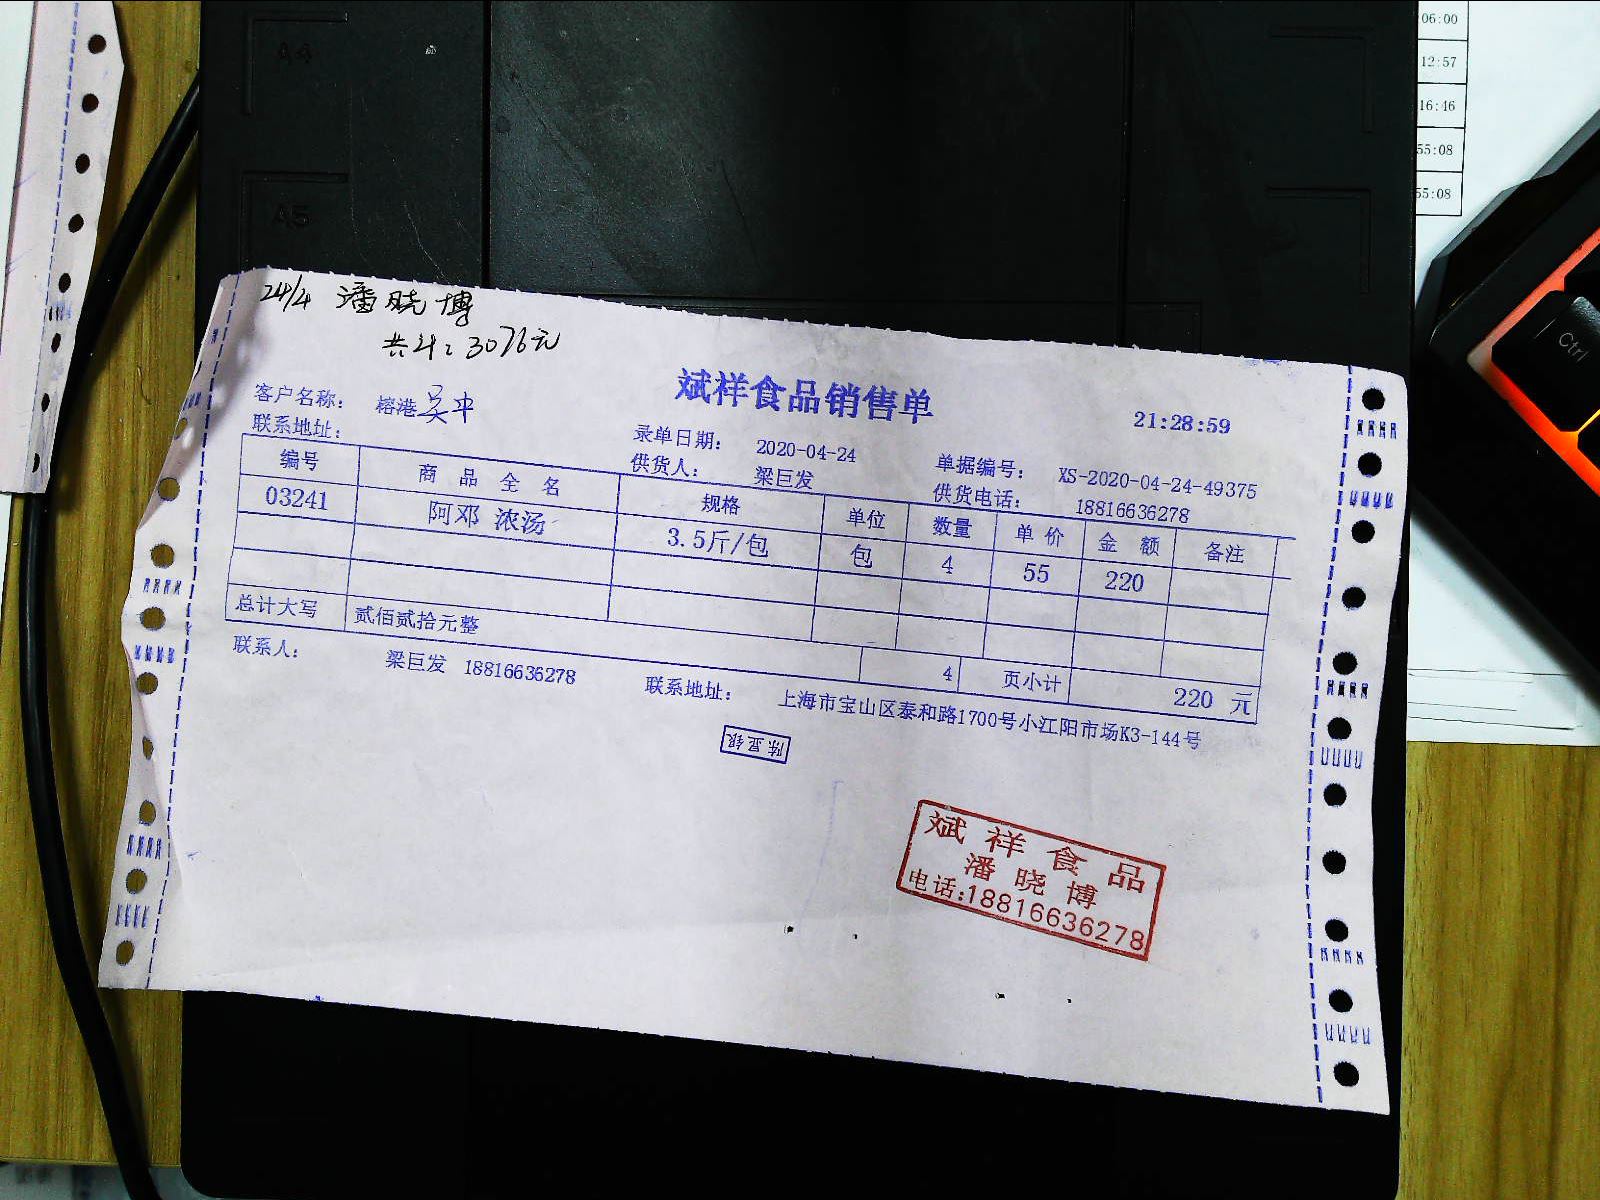 A4
A5
06:00
12:57
16:46
55:08
55:08
Ctrl
24/4 潘晓博
共计:3076元
斌祥食品销售单
21:28:59
客户名称: 榕港吴中
录单日期: 2020-04-24 单据编号: XS-2020-04-24-49375
联系地址: 供货人: 梁巨发 供货电话: 18816636278
编号 商品全名 规格 单位 数量 单价 金额 备注
03241 阿邓 浓汤 3.5斤/包 包 4 55 220
总计大写 贰佰贰拾元整
4 页小计 220 元
联系人: 梁巨发 18816636278 联系地址: 上海市宝山区泰和路1700号小江阳市场K3-144号
陈显银
斌祥食品
潘晓博
电话:18816636278